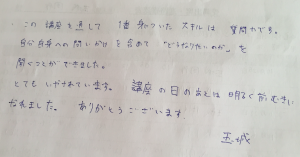 この講座を通して 1番身についたスキルは 質問力です。
自分自身への問いかけを含めて「どうなりたいのか」を
聞くことができました。
とても いやされています。 講座の日のあとは 明るく前むきに
なれました。 ありがとうございます。
玉城